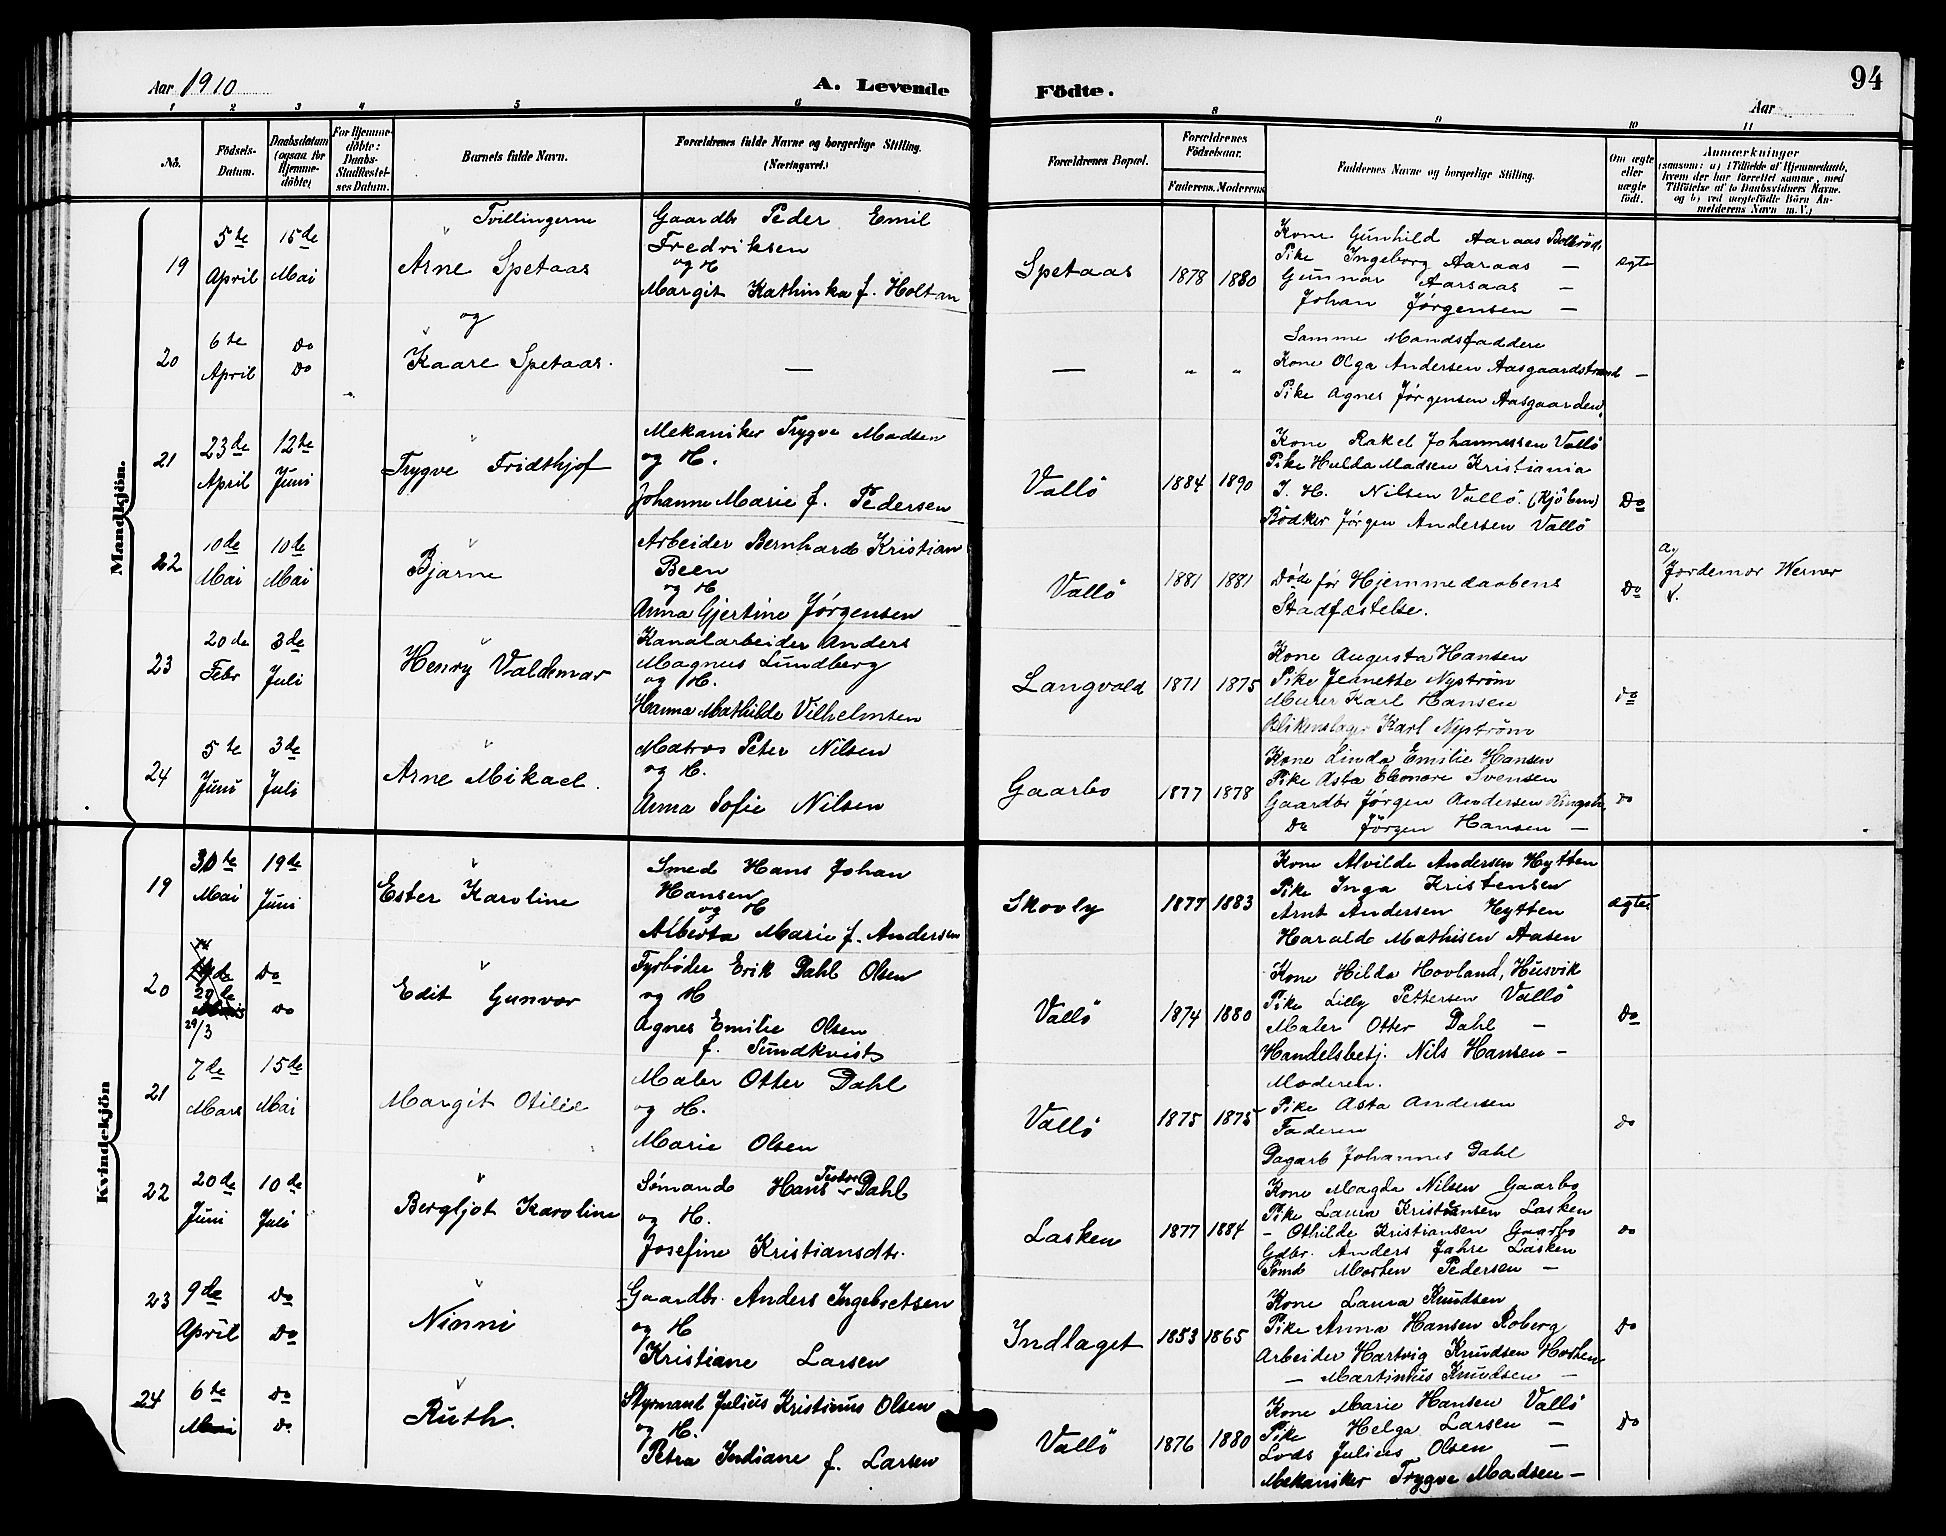 Aar 1910
A. Levende Födte.
94
Aar
1 2 3 4 5 6 8 9 10 11
No.
Födsels-Datum.
Daabsdatum (ogsaa for Hjemmedöbte)
For Hjemmedöbte: Daabs-Stadfæstelses Datum.
Barnets fulde Navn.
Forældrenes fulde Navne og borgerlige Stilling. (Næringsvei.)
Forældrenes Bopæl.
Forældrenes Födselsaar.
Faderens. Moderens.
Faddernes Navne og borgerlige Stilling.
Om ægte eller uægte födt.
Anmærkninger
(saasom: a) i Tilfælde af Hjemmedaab, hvem der har forrettet samme, med Tilföielse af to Daabsvidners Navne. og b) ved uægtefödte Börn Anmelderens Navn m. V.)
Mandkjön.
19
5te April
15de Mai
Tvillingerne
Arne Spetaas
og
Gaardbr Peder Emil
Fredriksen
og H
Margit Kathinka f. Holtan
Spetaas
1878 1880
Kone Gunhild Aaraas
Pike Ingeborg Aaraas —
Gunnar Aaraas —
Johan Jørgensen —
ægte
20
6te April
Do Do
Kaare Spetaas.
—
— " "
Samme Mandsfaddere
Kone Olga Andersen Aasgaardstrand
Pike Agnes Jørgensen Aasgaarden.
—
21
23de April
12te Juni
Trygve Fridthjof
Mekaniker Trygve Madsen
og H.
Johanne Marie f. Pedersen
Vallö
1884 1890
Kone Rakel Johannessen Vallö
Pike Hulda Madsen Kristiania
J. H. Nilsen Vallö. (Kjöbm)
Bödker Jørgen Andersen Vallö
Do
22
10de Mai
10de Mai
Bjarne
Arbeider Bernhard Kristian
Been
og H
Anna Gjertine Jørgensen
Vallö
1881 1881
Døde før Hjemmedaabens
Stadfæstelse.
Do
a/
Jordemor Werner
V.
23
20de Febr
3de Juli
Henry Valdemar
Kanalarbeider Anders
Magnus Lundberg
og H.
Hanna Mathilde Vilhelmsen
Langvold
1871 1875
Kone Augusta Hansen
Pike Jeanette Nyström
Murer Karl Hansen
Blikenslager Karl Nyström
do
24
5te Juni
3de Juli
Arne Mikael.
Matros Peter Nilsen
og H.
Anna Sofie Nilsen
Gaarbo
1877 1878
Kone Linda Emilie Hansen
Pike Asta Eleonore Svensen
Gaardbr Jørgen Andersen
Do Jörgen Hansen —
do
Kvindekjön
19
30te Mai
19de Juni
Ester Karoline
Smed Hans Johan
Hansen
og H
Alberta Marie f. Andersen
Skovly
1877 1883
Kone Alvilde Andersen Hytten
Pike Inga Kristensen
Arnt Andersen Hytten
Harald Mathisen Aasen
ægte
20
29/3
Do Do
Edit Gunvor
Fyrbøder Erik Dahl Olsen
og H
Agnes Emilie Olsen
f. Sundkvist
Vallö
1874 1880
Kone Hilda Hovland, Husvik
Pike Lilly Pettersen Vallö
Maler Otter Dahl —
Handelsbetj. Nils Hansen —
Do
21
7de Mars
15de Mai
Margit Otilie
Maler Otter Dahl
og H.
Marie Olsen
Vallö
1875 1875
Moderen.
Pike Asta Andersen
Faderen
Dagarb Johannes Dahl
do
22
20de Juni
10de Juli
Bergljot Karoline
Sømand Hans Dahl
og H.
Josefine Kristiansdtr.
Lasken
1877 1884
Kone Magda Nilsen Gaarbo
Pike Laura Kristiansen Lasken
— Othilde Kristiansen Gaarbo
Gdbr. Anders Jahre Lasken
Sömd Morten Pedersen —
do
23
9de April
Do Do
Ninni
Gaardbr. Anders Ingebretsen
og H
Kristiane Larsen
Indlaget
1853 1865
Kone Laura Knudsen
Pike Anna Hansen Roberg
Arbeider Hartvig Knudsen
— Martinius Knudsen —
Do
24
6te Mai
Do Do
Ruth.
Styrmand Julius Kristinus Olsen
og H.
Petra Indiane f. Larsen
Vallö
1876 1880
Kone Marie Hansen Vallö
Pike Helga Larsen —
Lods Julius Olsen —
Mekaniker Trygve Madsen —
Do